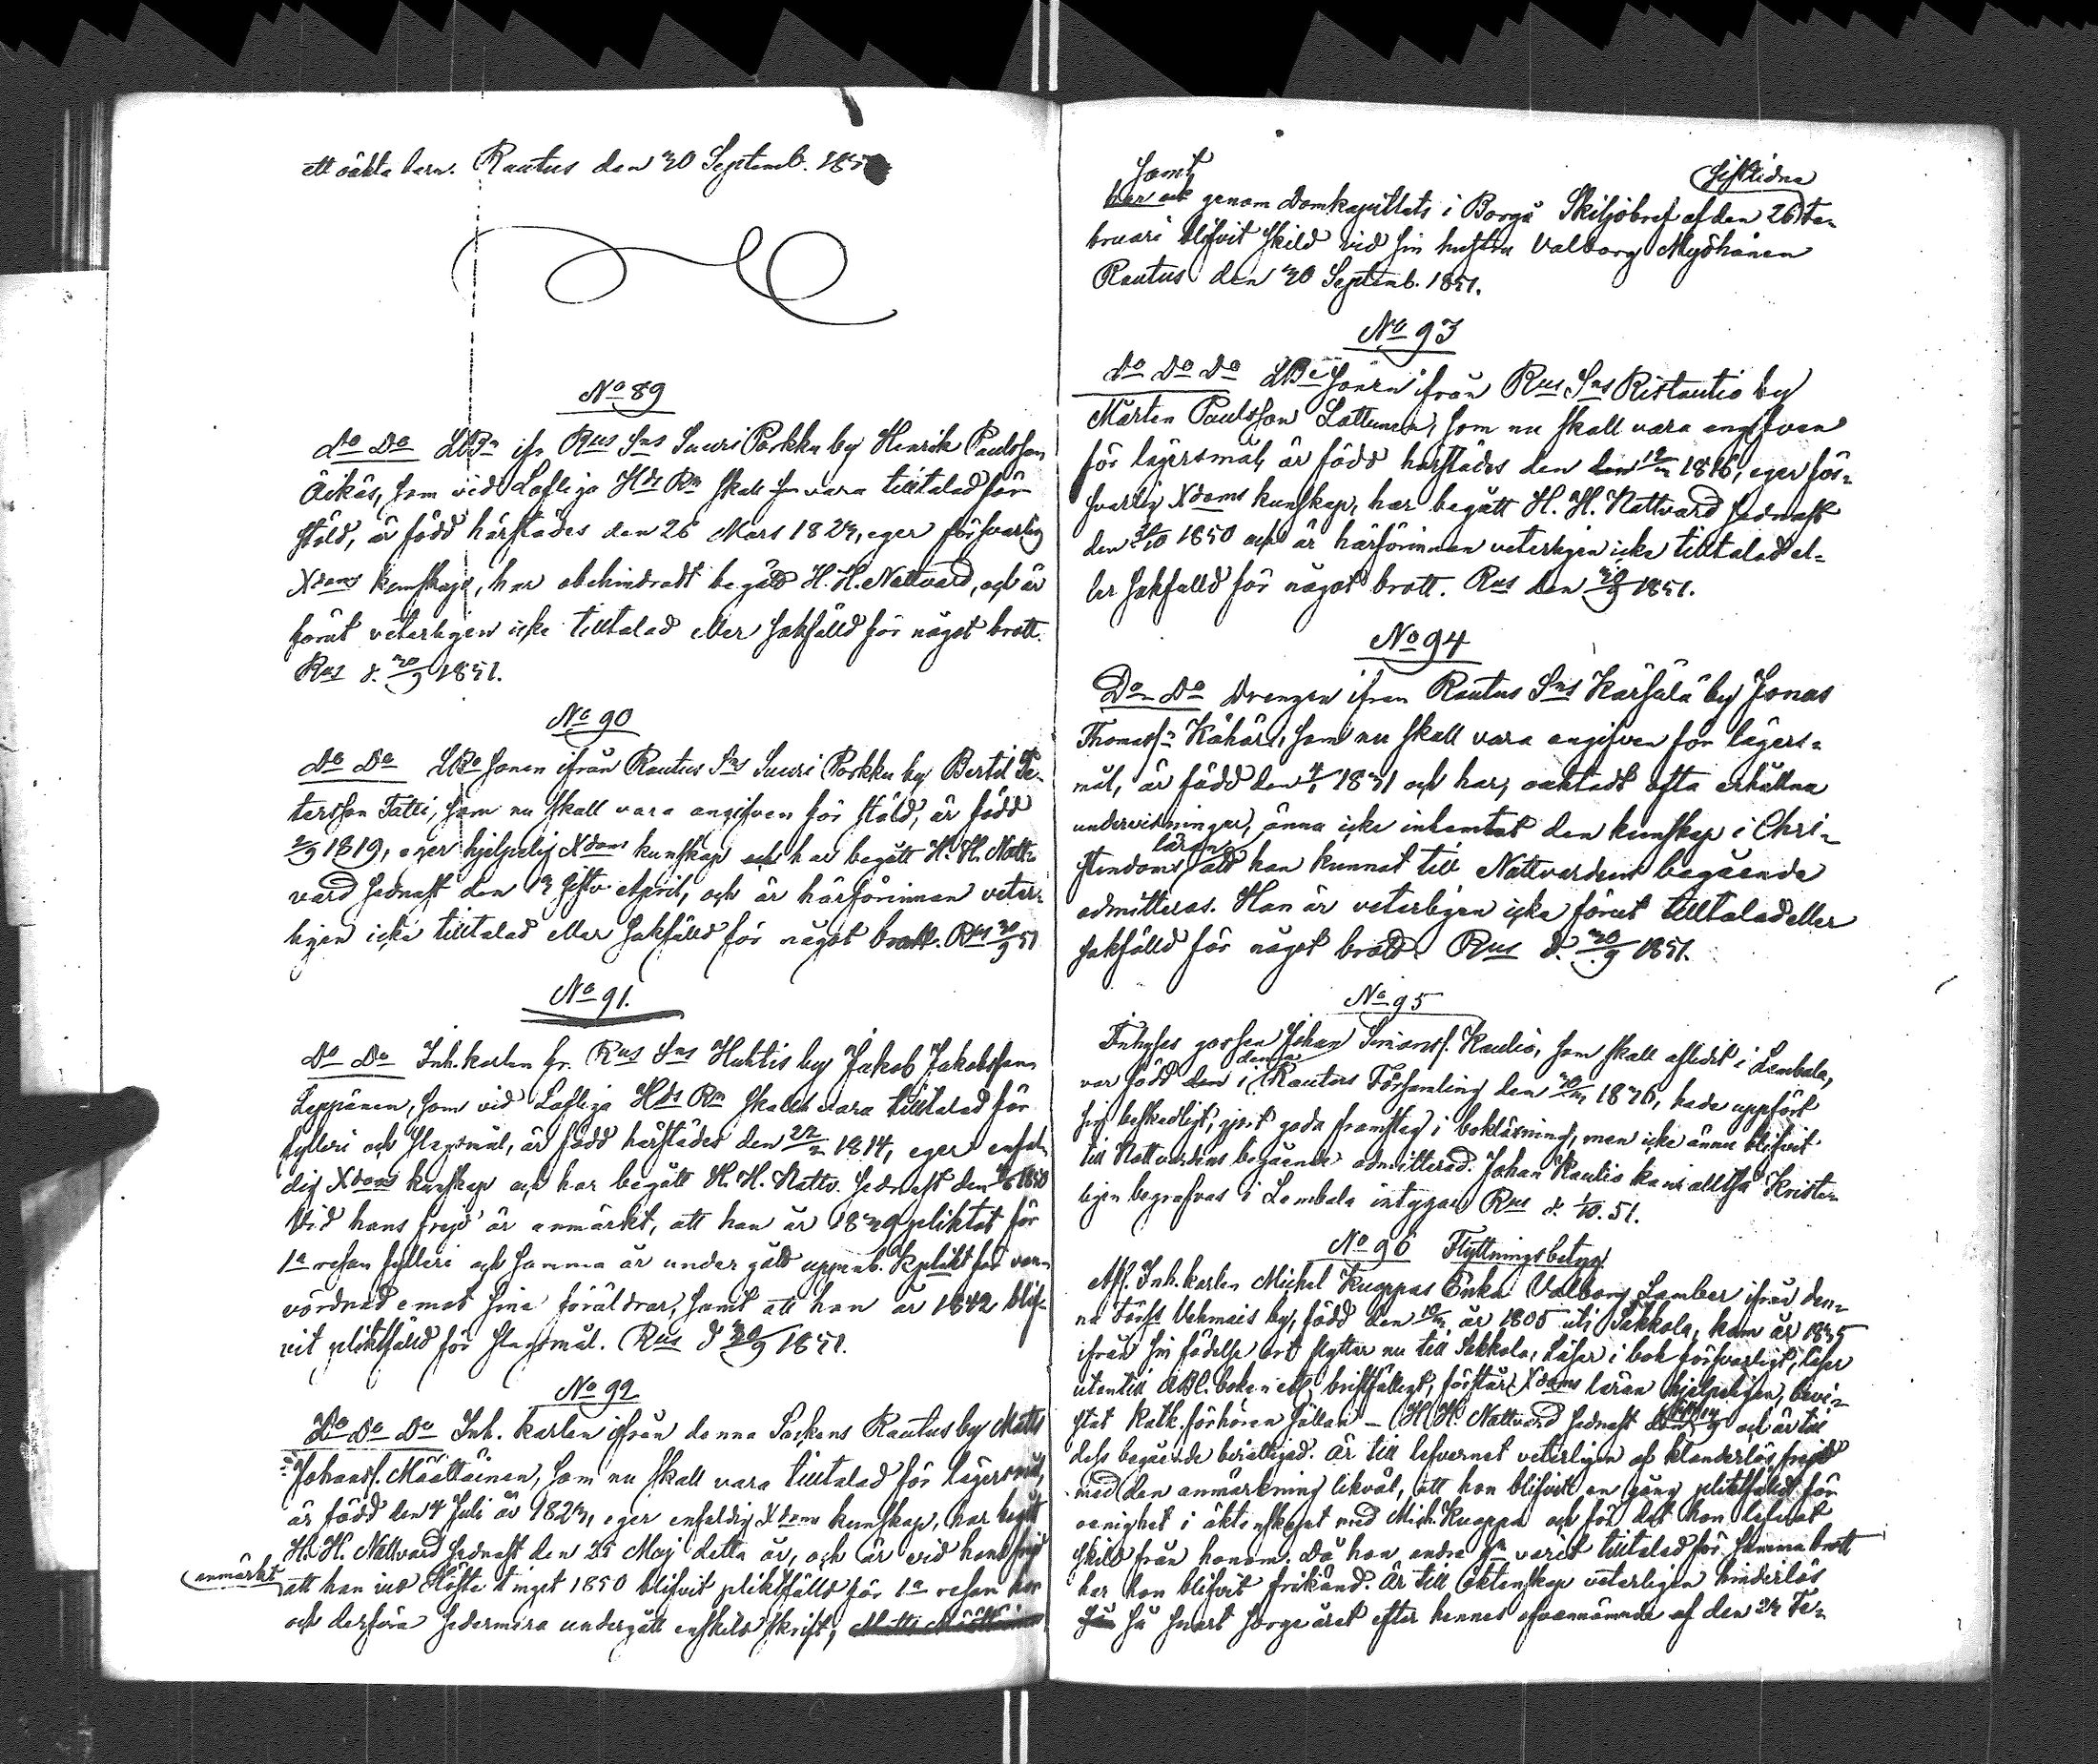 ett oäkta barn. Rautus den 30 Septemb. 185
No 89
Do Do LBn ifr Rus Sns Suuri Porkku by Henrik Paulsson
Äikäs, som vid Lofliga Hds Rn skall vara tilltalad för
stöld, är född härstädes den 26 Mars 1823, eger försvarlig
Xdoms kunskap, har obehindradt begått H. H. Nattvard, och är
förut veterligen icke tilltalad eller sakfälld för något brott.
Rus d. 30/9 1851.
No 90
Do Do LBo sonen ifrån Rautus Sns Suuri Porkku by Bertil Pe-
tersson Tatti, som nu skall vara angifven för stöld, är född
2/9 1819, eger hjelplig Xdoms kunskap och har begått H. H. Natt-
vard sednast den 13 sistl. April, och är härförinnan veter-
ligen icke tilltalad eller sakfälld för något brott. Rus 30/9 51
No 91.
Do Do Inh. karlen fr. Rus Sns Huhtis by Jakob Jakobsson
Leppänen, som vid Lofliga Hds Rn skall vara tilltalad för
fylleri och slagsmål, är född härstädes den 22/3 1814, eger enfal-
dig Xdoms kunskap och har begått H. H. Nattv. sednast den 1850
Vid hans frejd är anmärkt, att han år 1839 pliktat för
1a resan fylleri och samma år undergått uppenb. Kplikt för van-
vördnad emot sina föräldrar, samt att han år 1842 blif-
vit pliktfälld för slagsmål. Rus d 30/9 1851.
No 92
Do Do Do Inh. karlen ifrån denna Sockens Rautus by Matts
Johanss. Määttänen, som nu skall vara tilltalad för lägersmål,
är född den 4 Juli år 1823, eger enfaldig Xdoms kunskap, har begått
H. H. Nattvard sednast den 25 Maj detta år, och är vid hans frejd
anmärkt att han vid Höste tinget 1850 blifvit pliktfälld för 1a resan hor
och derföre sedermera undergått enskild skrift,
samt sistlidne
genom Domkapitlets i Borgå Skiljobref af den 26 Fe-
bruari blifvit skild vid sin hustru Valborg Myöhänen
Rautus den 30 Septemb. 1851.
No 93
Do Do Do LBo sonen ifrån Rus Sns Ristautio by
Mårten Paulsson Lattunen, som nu skall vara angifven
för lägersmål, är född härstädes den 1816, eger för-
svarlig Xdoms kunskap, har begått H. H. Nattvard sednast
den 1850 och är härförinnan veterligen icke tilltalad el-
ler sakfälld för något brott. Rus den 30/9 1851.
No 94
Do Do Drengen ifrån Rautus Sns Kärsälä by Jonas
Thomass:n Kähäri, som nu skall vara angifven för lägers-
mål, är född den 1831 och har, oaktadt ofta erhållna
undervisningar, ännu icke inhemtat den kunskap i Chri-
stendoms läran att han kunnat till Nattvardens begående
admitteras. Han är veterligen icke förut tilltalad eller
sakfälld för något brott. Rus d. 30/9 1851.
No 95
Inhyses gossen Johan Simonss. Raulio, som skall aflidit i Lembala,
var född den i denna Rautus Församling den 1836, hade uppfört
sig beskedligt, gjort goda framsteg i bokläsning, men icke ännu blifvit
till Nattvardens begående admitterad. Johan Raulio kan alltså Kriste-
ligen begrafvas i Lembala intygas Rus d. 1/10. 51.
No 96 Flyttningsbetyg
Afl. Inh. karlen Michel Kuoppas Enka Valborg Samber ifrån den-
na Förs. Vehmais by, född den år 1805 uti Sakkola, kom år 1835
ifrån sin födelse ort flyttar nu till Sakkola, Läser i bok försvarligt, läser
utantill ABC. boken etc. bristfälligt, förstår Xdoms läran hjelpligen, bevi-
stat Katk. förhören sällan — H. H. Nattvard sednast och är till
dess begående berättigad. Är till lefvernet veterligen af klanderlös frejd
med den anmärkning likväl, att hon blifvit en gång pliktfälld för
oenighet i äktenskapet med Mich. Kuoppa och för det hon lefvat
skild från honom. Då hon andra gn varit tilltalad för samma brott
har hon blifvit frikänd. Är till äktenskap veterligen hinderlös
så snart sorgeåret efter hennes ofvannämnde af den 23 Fe-